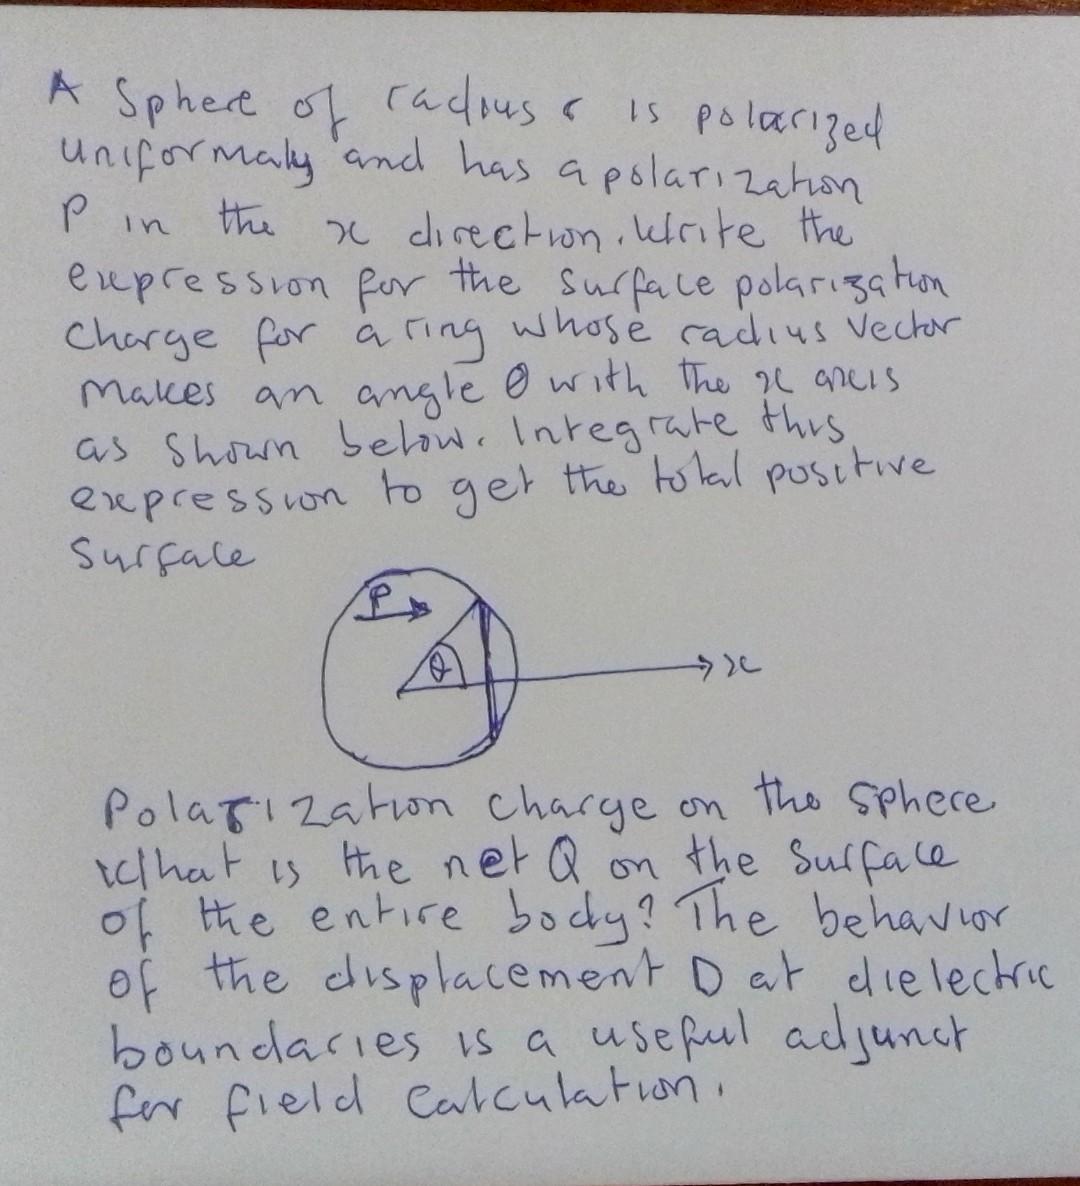 A Sphere of radius r is polarized
uniformaly and has a polarization
P in the x direction. Write the
expression for the surface polarization
charge for a ring whose radius vector
makes an angle θ with the x axis
as shown below. Integrate this
expression to get the total positive
surface
P
θ
x
Polarization charge on the sphere
What is the net Q on the surface
of the entire body? The behavior
of the displacement D at dielectric
boundaries is a useful adjunct
for field calculation.